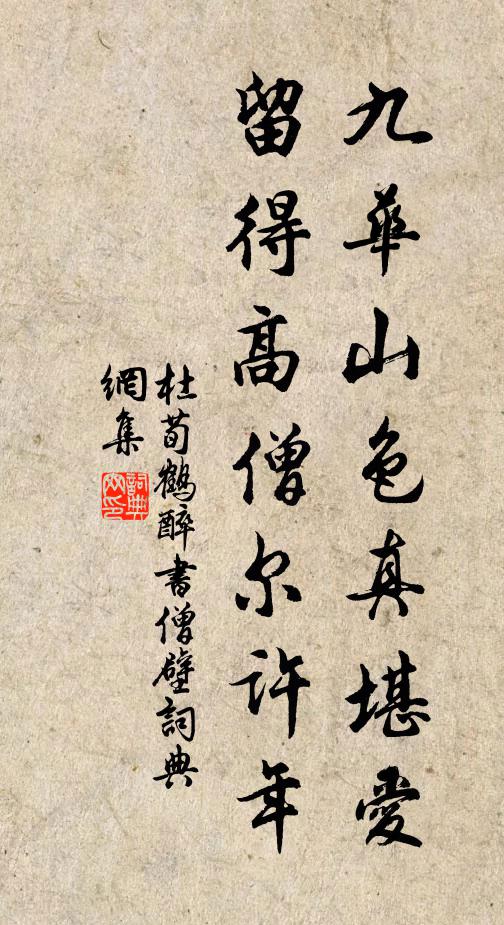 九華山色真堪愛
留得高僧尔許年
杜荀鶴醉書僧壁詞典
網集
詞典網印